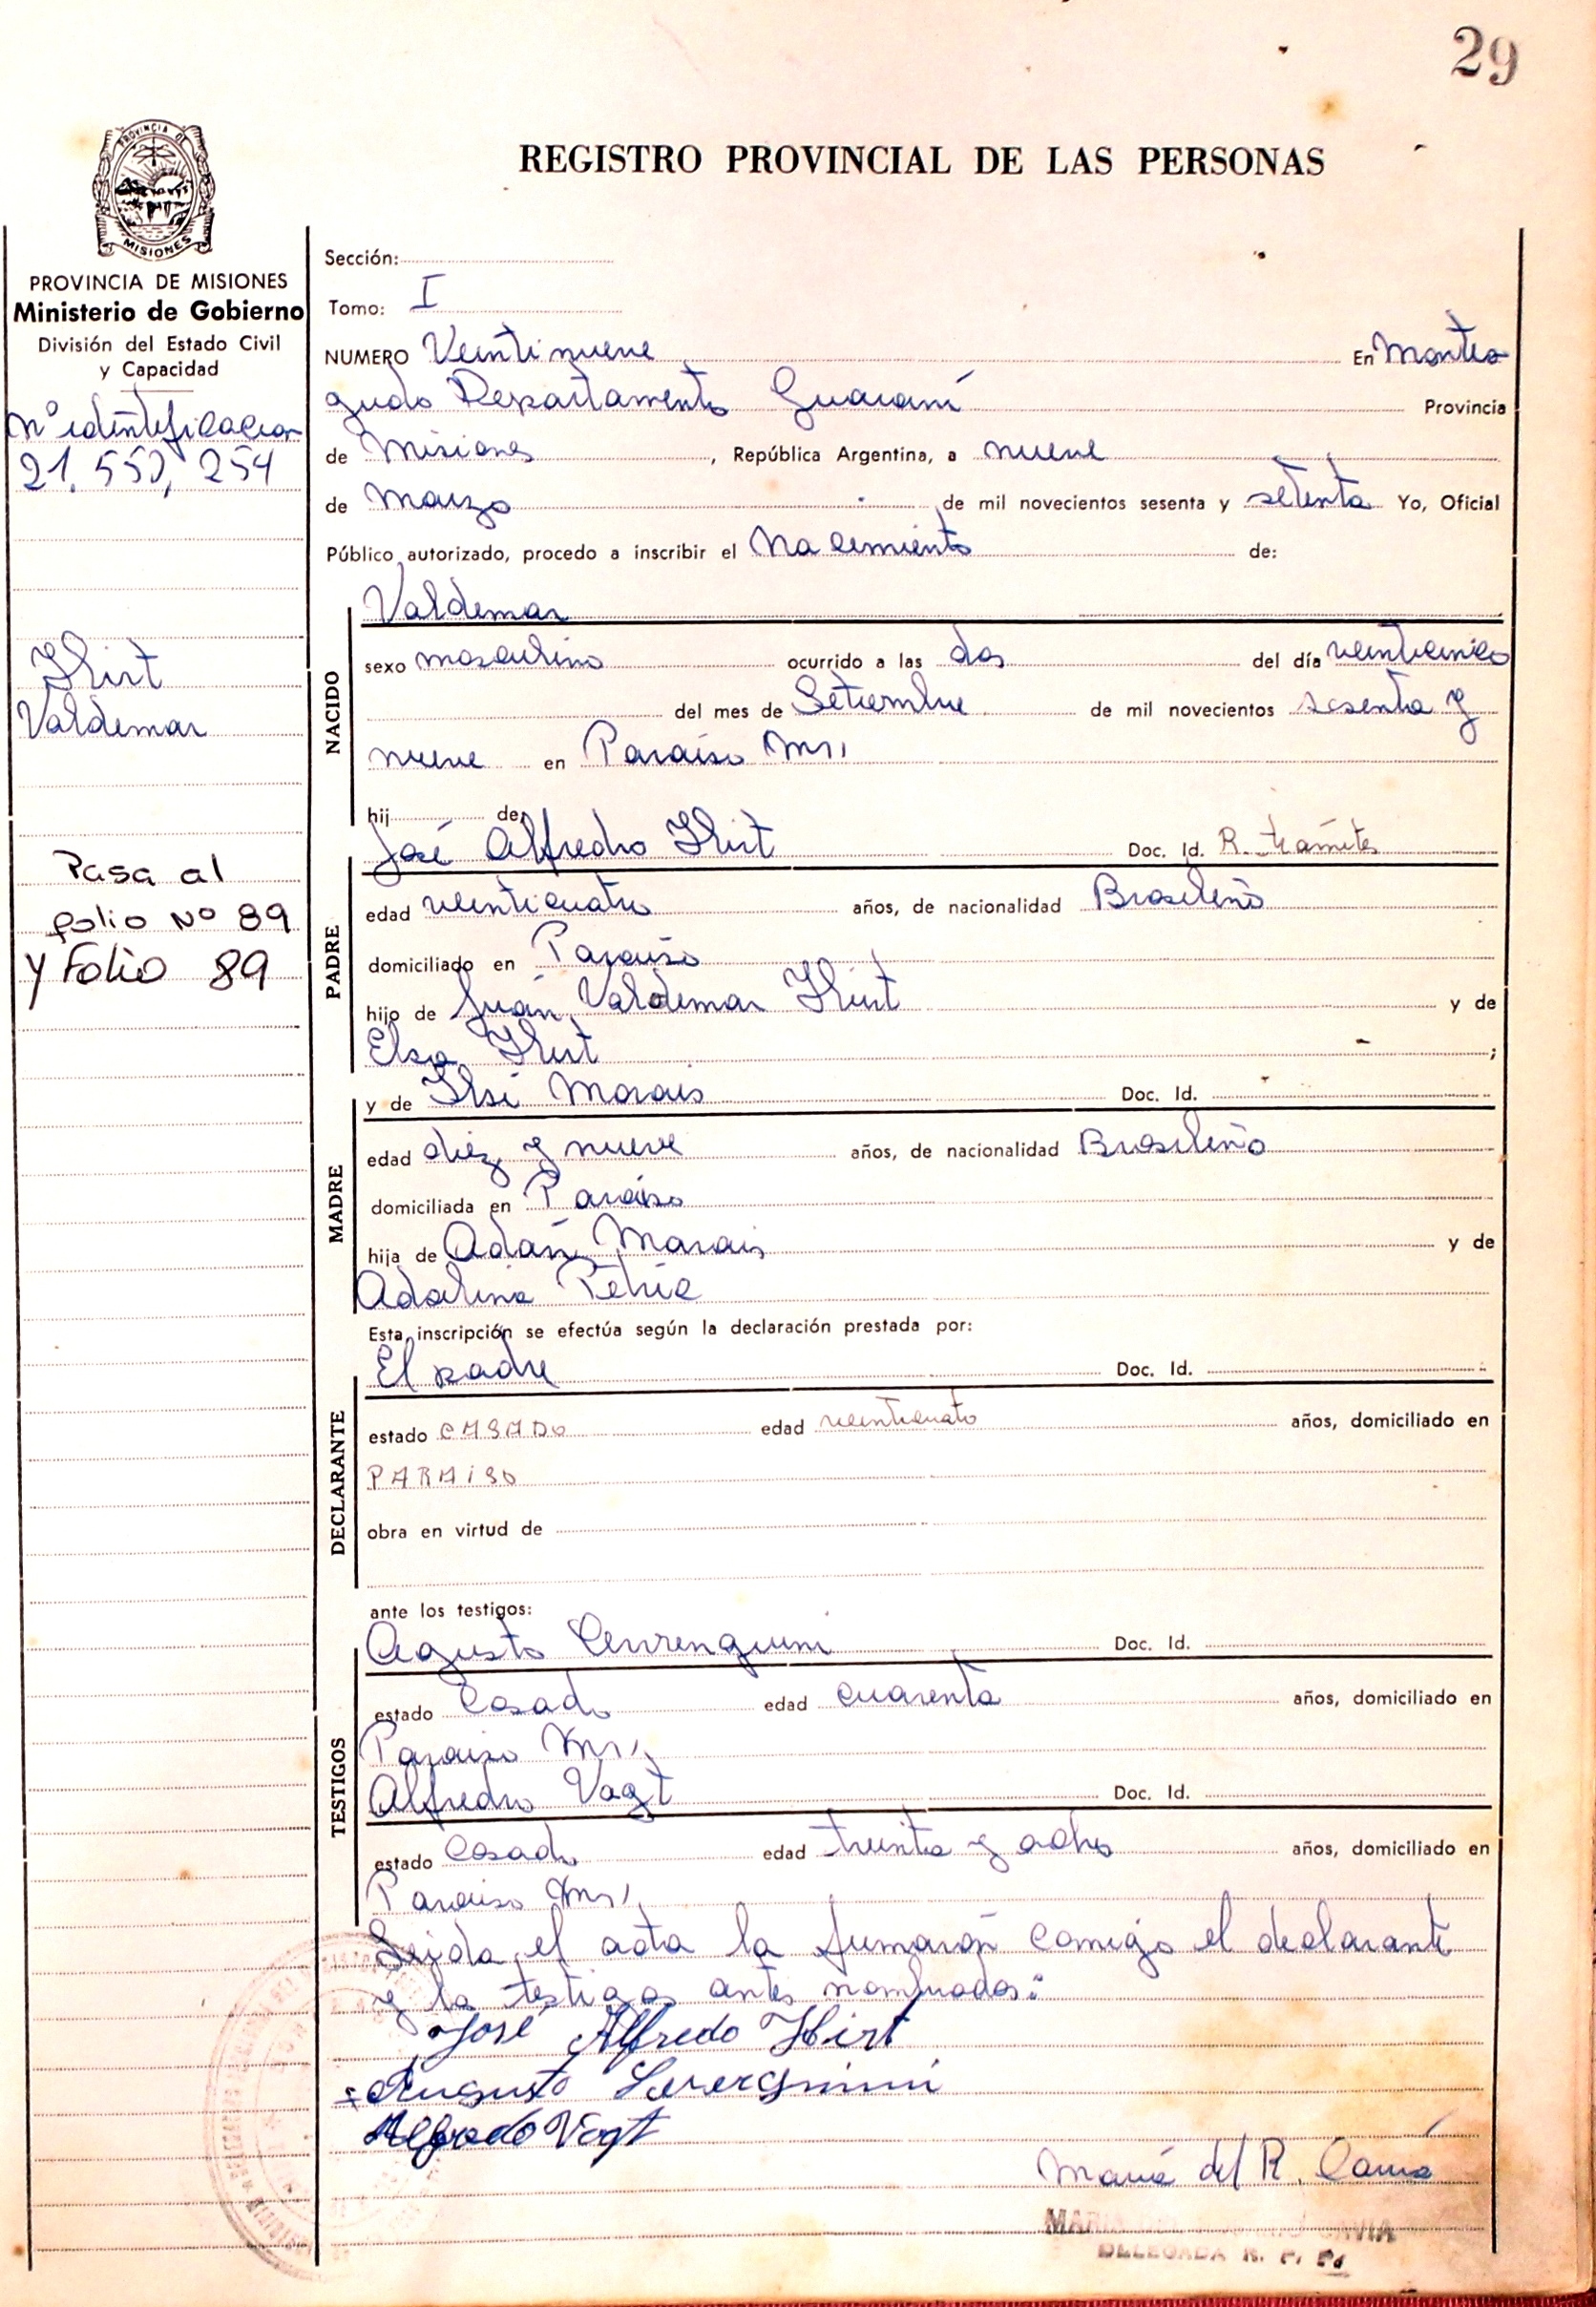 29
PROVINCIA DE
MISIONES
REGISTRO PROVINCIAL DE LAS PERSONAS
PROVINCIA DE MISIONES
Ministerio de Gobierno
División del Estado Civil
y Capacidad
Nº identificacion
21.550,254
Hirt
Valdemar
Pasa al
folio Nº 89
y Folio 89
Sección:
Tomo: I
NUMERO Veintinueve En Montea
gudo Departamento Guaraní Provincia
de Misiones, República Argentina, a nueve
de Marzo de mil novecientos sesenta y setenta Yo, Oficial
Público autorizado, procedo a inscribir el Nacimiento de:
Valdemar
NACIDO
sexo masculino ocurrido a las dos del día veinticinco
del mes de Setiembre de mil novecientos sesenta y
nueve en Paraiso Mns,
hij de
José Alfredo Hirt Doc. Id. R. trámite
PADRE
edad veinticuatro años, de nacionalidad Brasileño
domiciliado en Paraiso
hijo de Juan Valdemar Hirt y de
Elsa Hirt ;
y de Ilsi Morais Doc. Id.
MADRE
edad diez y nueve años, de nacionalidad Brasileño
domiciliada en Paraiso
hija de Adán Morais y de
Adelina
Esta inscripción se efectúa según la declaración prestada por:
El padre Doc. Id.
DECLARANTE
estado CASADO edad veinticuatro años, domiciliado en
PARAISO
obra en virtud de
ante los testigos:
Agusto Doc. Id.
TESTIGOS
estado Casado edad cuarenta años, domiciliado en
Paraiso Mns,
Alfredo Vogt Doc. Id.
estado Casado edad treinta y ocho años, domiciliado en
Paraiso Mns,
Leida el acta la firmarón comigo el declarante
y los testigos antes nombrados:
José Alfredo Hirt
Augusto
Alfredo Vogt
María del R. Cavia
MARIA CAVIA
DELEGADA R. P. P.